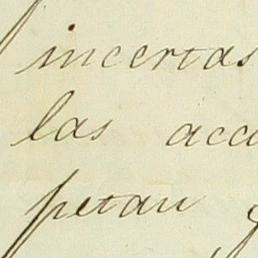 incertas
las aca
petan